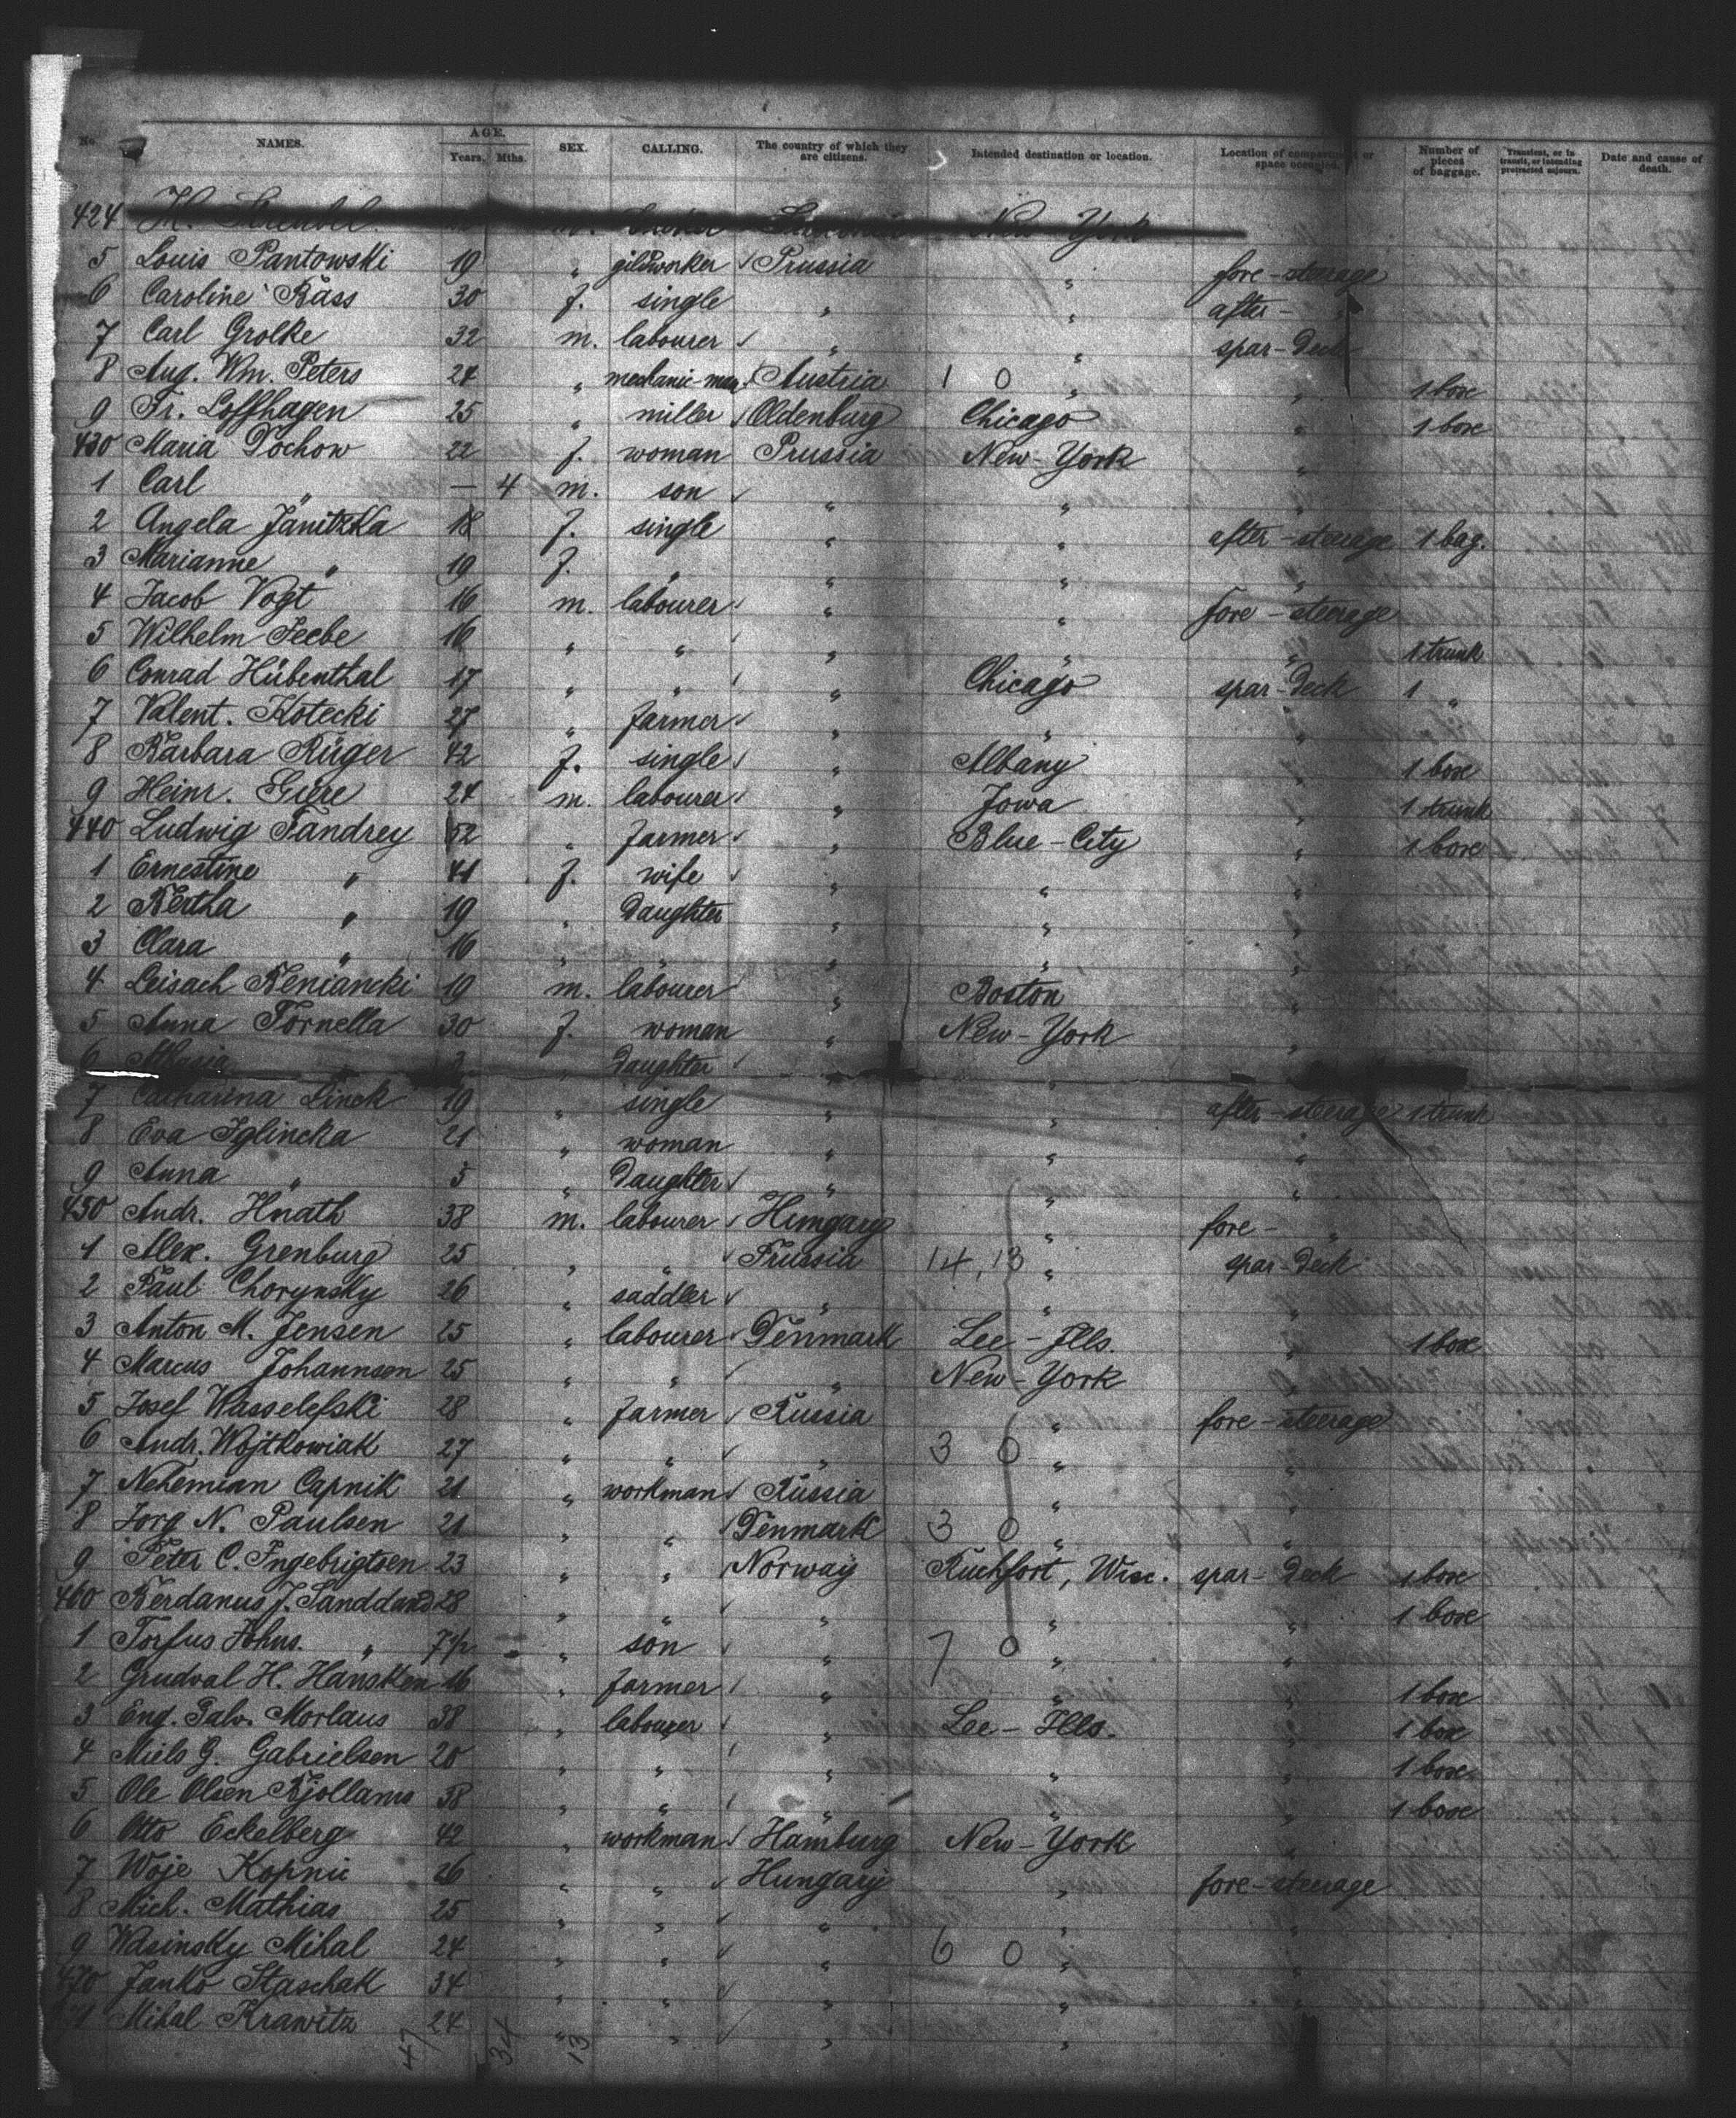 No. NAMES. AGE. Years. Mths. SEX. CALLING. The country of which they are citizens. Intended destination or location. Location of compartment or space occupied. Number of pieces of baggage. Transient, or in transit, or intending protracted sojourn. Date and cause of death.
424 New York
5 Louis Pantowski 19 " gildworker √ Prussia " fore-steerage
6 Caroline Räss 30 f. single " " after- "
7 Carl Grolke 32 m. labourer √ " " spar-Deck
8 Aug. Wm. Peters 24 " mechanic-man. Austria 1 0 " " 1 box
9 Fr. Loffhagen 25 " miller √ Oldenburg Chicago " 1 box
430 Maria Pochow 22 f. woman Prussia New-York "
1 Carl " — 4 m. son √ " "
2 Angela Janitzka 18 f. single " " after-steerage 1 bag.
3 Marianne " 19 f. " " " "
4 Jacob Vogt 16 m. labourer √ " " fore-steerage
5 Wilhelm Feebe 16 " " √ " " " 1 trunk
6 Conrad Hübenthal 17 " " √ " Chicago spar-Deck 1 "
7 Valent. Kotecki 27 " farmer √ " " "
8 Barbara Rüger 42 f. single √ " Albany " 1 box
9 Heinr. Giere 24 m. labourer √ " Jowa " 1 trunk
440 Ludwig Fandrey 52 " farmer √ " Blue-City " 1 box
1 Ernestine " 41 f. wife √ " " "
2 Bertha " 19 " Daughter " " "
3 Clara " 16 " " " " "
4 Leisach Beniancki 19 m. labourer " Boston "
5 Anna Fornella 30 f. woman " New-York "
6 3 " Daughter √
7 Catharina Linck 19 " single " " after-steerage 1 trunk
8 Eva Iglincka 21 " woman " " "
9 Anna " 5 " Daughter √ " " "
450 Andr. Hnath 38 m. labourer √ Hungary " fore- "
1 Alex. Grenburg 25 " " √ Prussia 14, 13 " spar-Deck
2 Paul Chorynsky 26 " saddler √ " " "
3 Anton M. Jensen 25 " labourer √ Denmark Lee-Ills. " 1 box
4 Marcus Johannsen 25 " " √ " New-York "
5 Josef Wasselefski 28 " farmer √ Russia " fore-steerage
6 Andr. Wojtkowiak 27 " " √ " 3 0 " "
7 Nehemian Capnik 21 " workman √ Russia " "
8 Jorg N. Paulsen 21 " " √ Denmark 3 0 " "
9 Peter C. Ingebrigtsen 23 " " Norway Ruchfort, Wisc. spar-Deck 1 box
460 Berdanus J. Sanddand 28 " " √ " " " 1 box
1 Torfus Johns. " 7½ " son √ " 7 0 " "
2 Grudval H. Hansken 16 " farmer √ " " " 1 box
3 Eng. Salv. Morlaus 38 " labourer √ " Lee-Ills. " 1 box
4 Miels G. Gabrielsen 20 " " √ " " " 1 box
5 Ole Olsen Bjollams 38 " " √ " " " 1 box
6 Otto Eckelberg 42 " workman √ Hamburg New-York "
7 Woje Kopnic 26 " " √ Hungary " fore-steerage
8 Mich. Mathias 25 " " √ " " "
9 Wasinsky Mihal 24 " " √ " 6 0 " "
470 Janko Staschak 34 " " √ " " "
71 Mihal Krawitz 24 " " √ " "
47 34 13